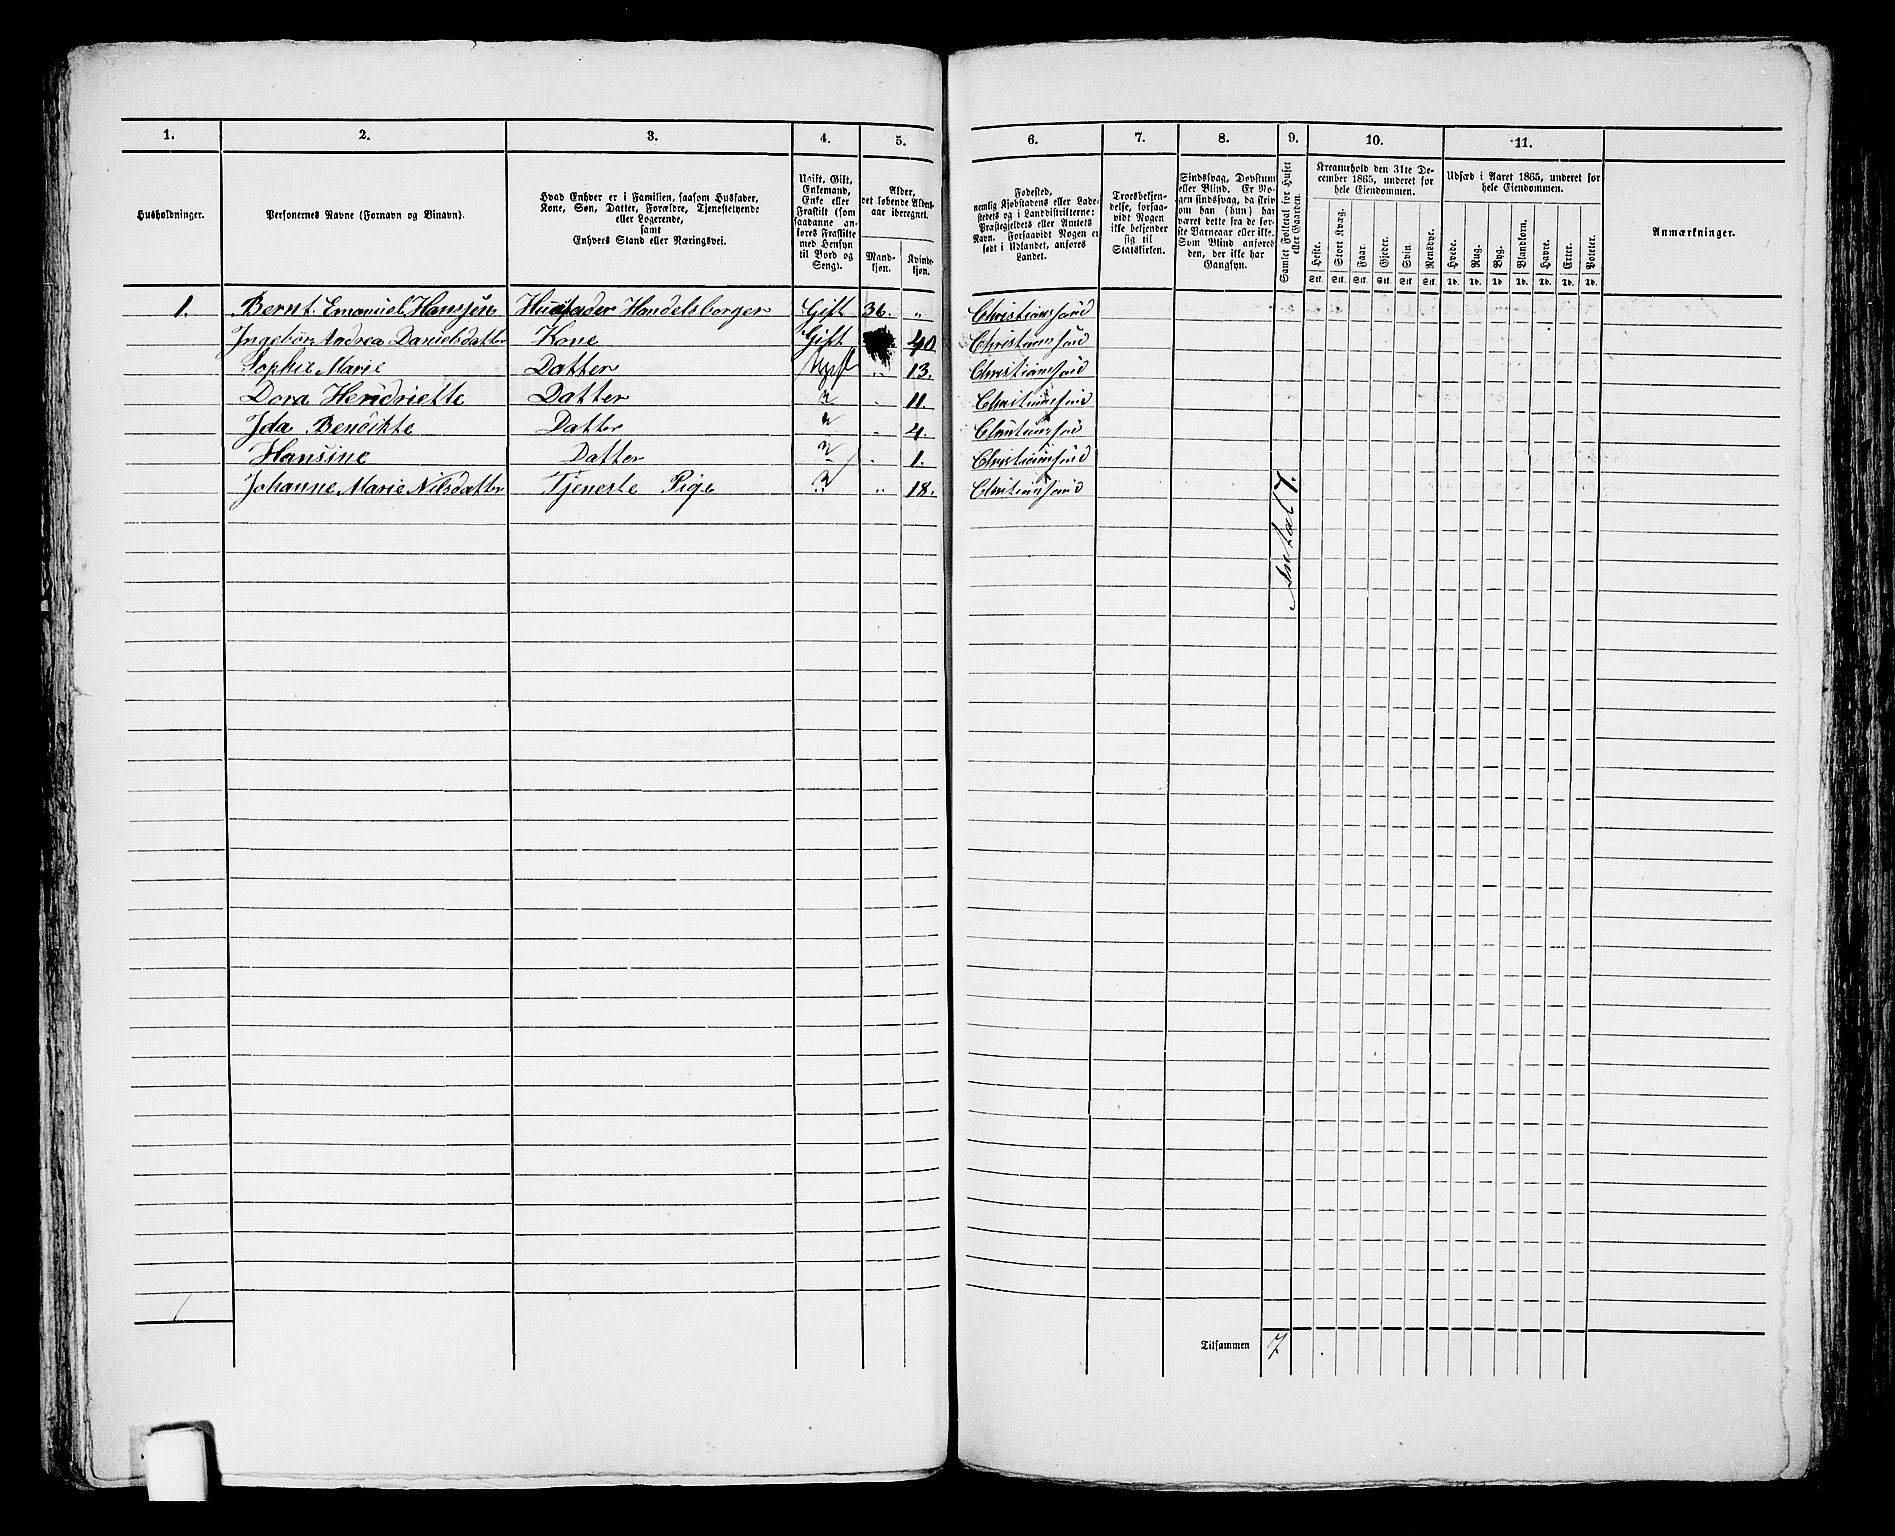 1. 2. 3. 4. 5. 6. 7. 8. 9. 10. 11.
Husholdninger.
Personernes Navne (Fornavn og Binavn).
Hvad Enhver er i Familien, saasom Husfader,
Kone, Søn, Datter, Forældre, Tjenestetyende
eller Logerende,
samt
Enhvers Stand eller Næringsvei.
Ugift, Gift,
Enkemand,
Enke eller
Fraskilt (som
saadanne an-
føres Fraskilte
med Hensyn
til Bord og
Seng).
Alder,
det løbende Alders-
aar iberegnet.
Mand-
kjøn.
Kvinde-
kjøn.
Fødested,
nemlig Kjøbstadens eller Lade-
stedets og i Landdistrikterne:
Præstegjeldets eller Amtets
Navn. Forsaavidt Nogen er
født i Udlandet, anføres
Landet.
Troesbekjen-
delse, forsaa-
vidt Nogen
ikke bekjender
sig til
Statskirken.
Sindssvag, Døvstum
eller Blind. Er No-
gen sindssvag, da skriv
om han (hun) har
været dette fra de før-
ste Barneaar eller ikke.
Som Blind anføres
den, der ikke har
Gangsyn.
Samlet Folketal for Huset
eller Gaarden.
Kreaturhold den 31te De-
cember 1865, underet for
hele Eiendommen.
Heste.
Stort Kvæg.
Faar.
Gjeder.
Svin.
Rensdyr.
Stk. Stk. Stk. Stk. Stk. Stk.
Udsæd i Aaret 1865, underet for
hele Eiendommen.
Hvede.
Rug.
Byg.
Blandkorn.
Havre.
Erter.
Poteter.
Td. Td. Td. Td. Td. Td. Td.
Anmærkninger.
1. Bernt Emanuel Hanssen Husfader Handelsborger Gift 36. " Christianssand
Ingebor Andrea Danielsdatter Kone Gift 40 Christianssand
Sophie Marie Datter Ugift " 13. Christianssand
Dora Hendriette Datter " 11. Christianssand
Ida Bendikte Datter " 4. Christianssand
Hansine Datter " 1. Christianssand
Johanne Marie Nilsdatter Tjeneste Pige " " 18. Christianssand
Antal 7.
1
Tilsammen 7